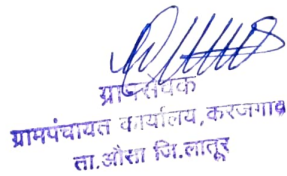 ग्रामसेवक
ग्रामपंचायत कार्यालय, करजगाव
ता.औसा जि.लातूर